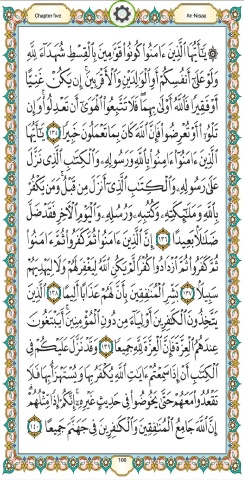 Chapter five An-Nisaa
۞ يَٰٓأَيُّهَا ٱلَّذِينَ ءَامَنُوا۟ كُونُوا۟ قَوَّٰمِينَ بِٱلْقِسْطِ شُهَدَآءَ لِلَّهِ
وَلَوْ عَلَىٰٓ أَنفُسِكُمْ أَوِ ٱلْوَٰلِدَيْنِ وَٱلْأَقْرَبِينَ ۚ إِن يَكُنْ غَنِيًّا
أَوْ فَقِيرًا فَٱللَّهُ أَوْلَىٰ بِهِمَا ۖ فَلَا تَتَّبِعُوا۟ ٱلْهَوَىٰٓ أَن تَعْدِلُوا۟ ۚ وَإِن
تَلْوُۥٓا۟ أَوْ تُعْرِضُوا۟ فَإِنَّ ٱللَّهَ كَانَ بِمَا تَعْمَلُونَ خَبِيرًا ١٣٥ يَٰٓأَيُّهَا
ٱلَّذِينَ ءَامَنُوٓا۟ ءَامِنُوا۟ بِٱللَّهِ وَرَسُولِهِۦ وَٱلْكِتَٰبِ ٱلَّذِى نَزَّلَ
عَلَىٰ رَسُولِهِۦ وَٱلْكِتَٰبِ ٱلَّذِىٓ أَنزَلَ مِن قَبْلُ ۚ وَمَن يَكْفُرْ
بِٱللَّهِ وَمَلَٰٓئِكَتِهِۦ وَكُتُبِهِۦ وَرُسُلِهِۦ وَٱلْيَوْمِ ٱلْءَاخِرِ فَقَدْ ضَلَّ
ضَلَٰلًۢا بَعِيدًا ١٣٦ إِنَّ ٱلَّذِينَ ءَامَنُوا۟ ثُمَّ كَفَرُوا۟ ثُمَّ ءَامَنُوا۟
ثُمَّ كَفَرُوا۟ ثُمَّ ٱزْدَادُوا۟ كُفْرًا لَّمْ يَكُنِ ٱللَّهُ لِيَغْفِرَ لَهُمْ وَلَا لِيَهْدِيَهُمْ
سَبِيلًۢا ١٣٧ بَشِّرِ ٱلْمُنَٰفِقِينَ بِأَنَّ لَهُمْ عَذَابًا أَلِيمًا ١٣٨ ٱلَّذِينَ
يَتَّخِذُونَ ٱلْكَٰفِرِينَ أَوْلِيَآءَ مِن دُونِ ٱلْمُؤْمِنِينَ ۚ أَيَبْتَغُونَ
عِندَهُمُ ٱلْعِزَّةَ فَإِنَّ ٱلْعِزَّةَ لِلَّهِ جَمِيعًا ١٣٩ وَقَدْ نَزَّلَ عَلَيْكُمْ فِى
ٱلْكِتَٰبِ أَنْ إِذَا سَمِعْتُمْ ءَايَٰتِ ٱللَّهِ يُكْفَرُ بِهَا وَيُسْتَهْزَأُ بِهَا فَلَا
تَقْعُدُوا۟ مَعَهُمْ حَتَّىٰ يَخُوضُوا۟ فِى حَدِيثٍ غَيْرِهِۦٓ ۚ إِنَّكُمْ إِذًا مِّثْلُهُمْ ۗ
إِنَّ ٱللَّهَ جَامِعُ ٱلْمُنَٰفِقِينَ وَٱلْكَٰفِرِينَ فِى جَهَنَّمَ جَمِيعًا ١٤٠
100